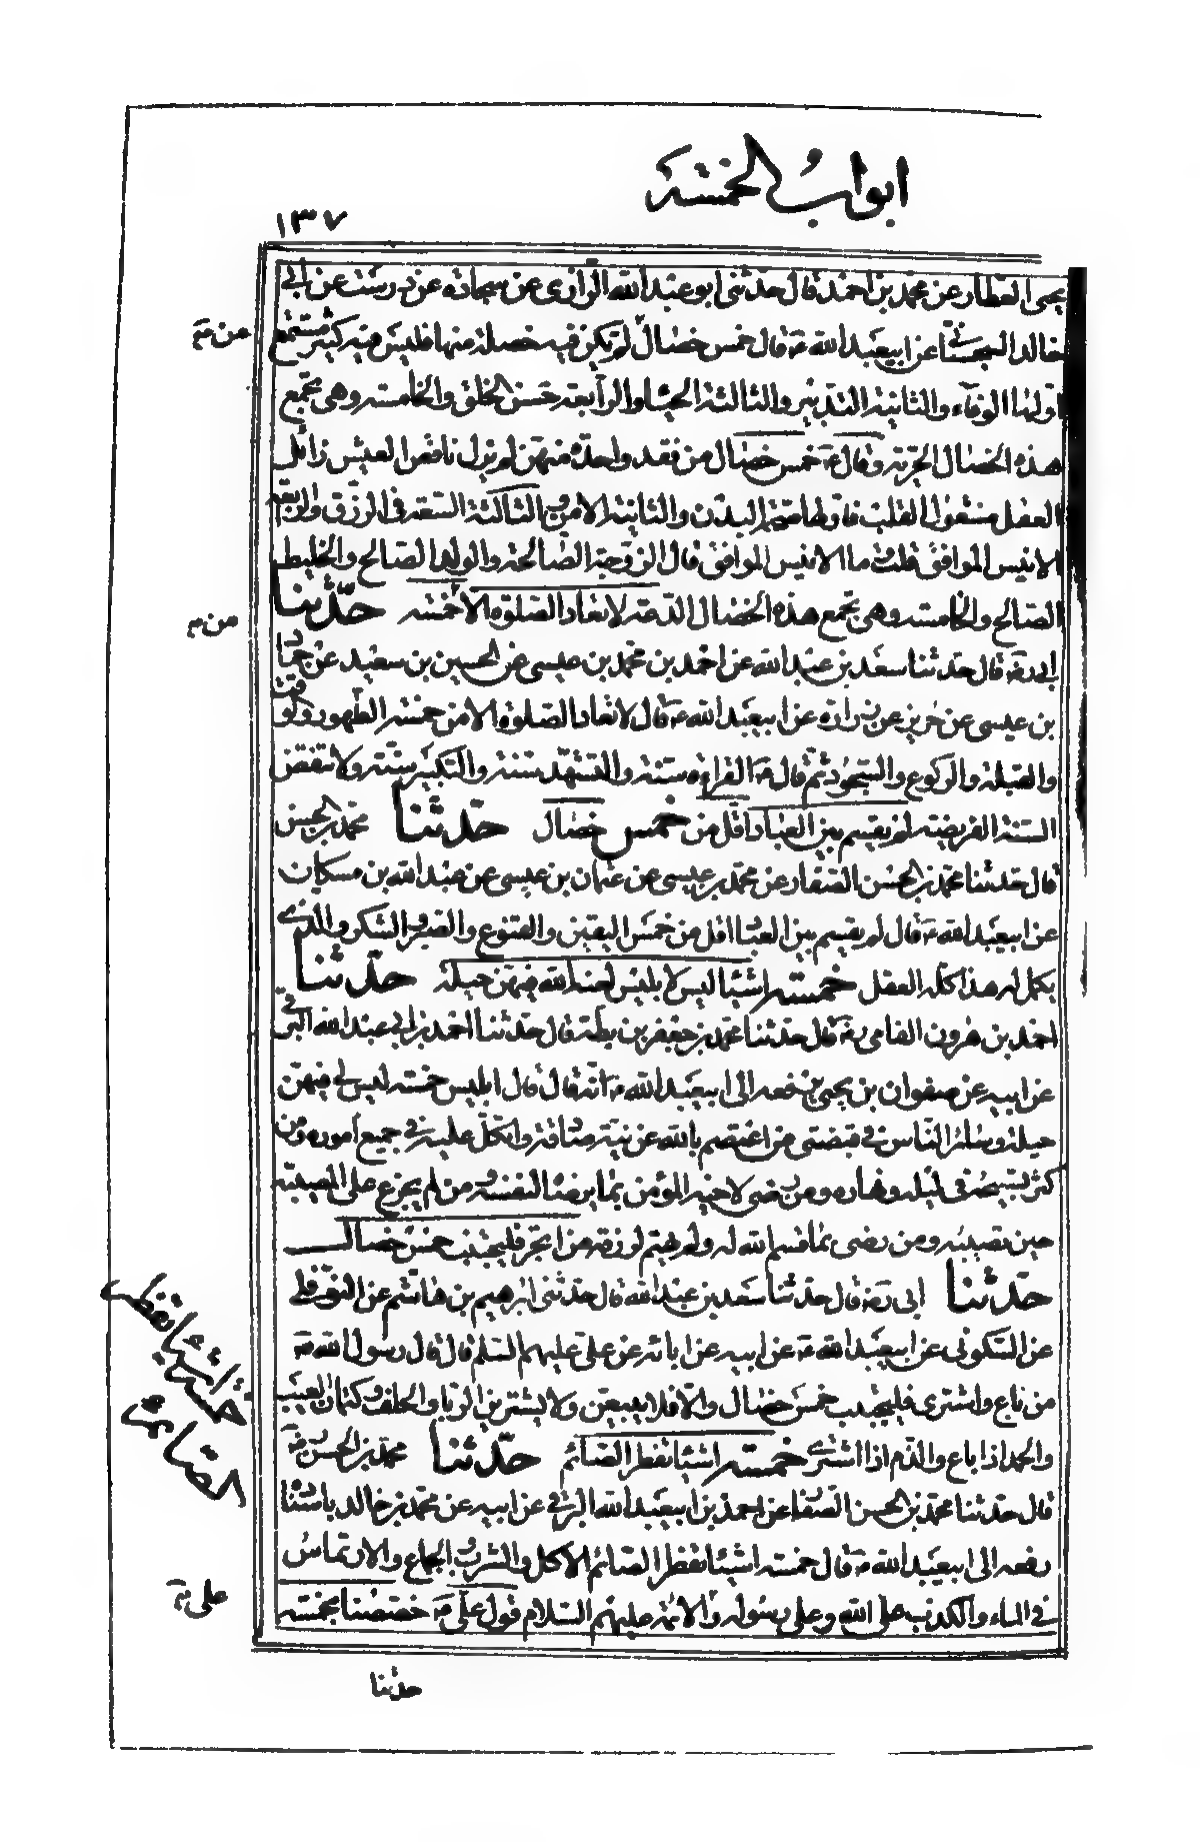 ابواب الخمسة
١٣٧
يحيى العطار عن محمد بن احمد قال حدثنى ابو عبد الله الرازى عن سجادة عن درست عن ابى
خالد السجستانى عن ابيعبد الله ع قال خمس خصال من لم تكن فيه خصلة منها فليس فيه كثير مستمتع
اولها الوفاء والثانية التدبير والثالثة الحياء والرابعة حسن الخلق والخامسة وهى تجمع
هذه الخصال الحرية وقال ع خمس خصال من فقد واحدة منهن لم يزل ناقص العيش زائل
العقل مشغول القلب فاولها صحة البدن والثانية الامن والثالثة السعة فى الرزق والرابعة
الانيس الموافق قلت وما الانيس الموافق قال الزوجة الصالحة والولد الصالح والخليط
الصالح والخامسة وهى تجمع هذه الخصال الدعة لا تعاد الصلوة الا من خمسة حدثنا
ابى ره قال حدثنا سعد بن عبد الله عن احمد بن محمد بن عيسى عن الحسين بن سعيد عن حماد
بن عيسى عن حريز عن زرارة عن ابيعبد الله ع قال لا تعاد الصلوة الا من خمسة الطهور والوقت
والقبلة والركوع والسجود ثم قال ع القراءة سنة والتشهد سنة والتكبير سنة ولا تنقض
السنة الفريضة لم يقسم بين العباد اقل من خمس خصال حدثنا محمد بن الحسن
قال حدثنا محمد بن الحسن الصفار عن محمد بن عيسى عن عثمان بن عيسى عن عبد الله بن مسكان
عن ابيعبد الله ع قال لم يقسم بين العباد اقل من خمس اليقين والقنوع والصبر والشكر والذى
يكمل له هذا كله العقل خمسة اشياء ليس لابليس لعنه الله فيهن حيلة حدثنا
احمد بن هرون الفامى ره قال حدثنا محمد بن جعفر بن بطة قال حدثنا احمد بن ابى عبد الله البرقى
عن ابيه عن صفوان بن يحيى رفعه الى ابيعبد الله ع انه قال قال ابليس خمسة ليس لى فيهن
حيلة وسائر الناس فى قبضتى من اعتصم بالله عن نية صادقة واتكل عليه فى جميع اموره ومن
كثر تسبيحه فى ليله ونهاره ومن رضى لاخيه المؤمن بما يرضاه لنفسه ومن لم يجزع على المصيبة
حين تصيبه ومن رضى بما قسم الله له ولم يهتم لرزقه من اتجر فليجتنب خمس خصال
حدثنا ابى ره قال حدثنا سعد بن عبد الله قال حدثنى ابرهيم بن هاشم عن النوفلى
عن السكونى عن ابيعبد الله ع عن ابيه عن ابائه عن على عليهم السلم قال قال رسول الله ص
من باع واشترى فليجتنب خمس خصال والا فلا يبيعن ولا يشترين الربا والحلف وكتمان العيب
والحمد اذا باع والذم اذا اشترى خمسة اشياء تفطر الصائم حدثنا محمد بن الحسن ره
قال حدثنا محمد بن الحسن الصفار عن احمد بن ابيعبد الله البرقى عن ابيه عن محمد بن خالد باسناده
رفعه الى ابيعبد الله ع قال خمسة اشياء تفطر الصائم الاكل والشرب والجماع والارتماس
فى الماء والكذب على الله وعلى رسوله والائمة عليهم السلام قول على ع خصصنا بخمسة
خمسة اشياء تفطر
الصائم
حدثنا